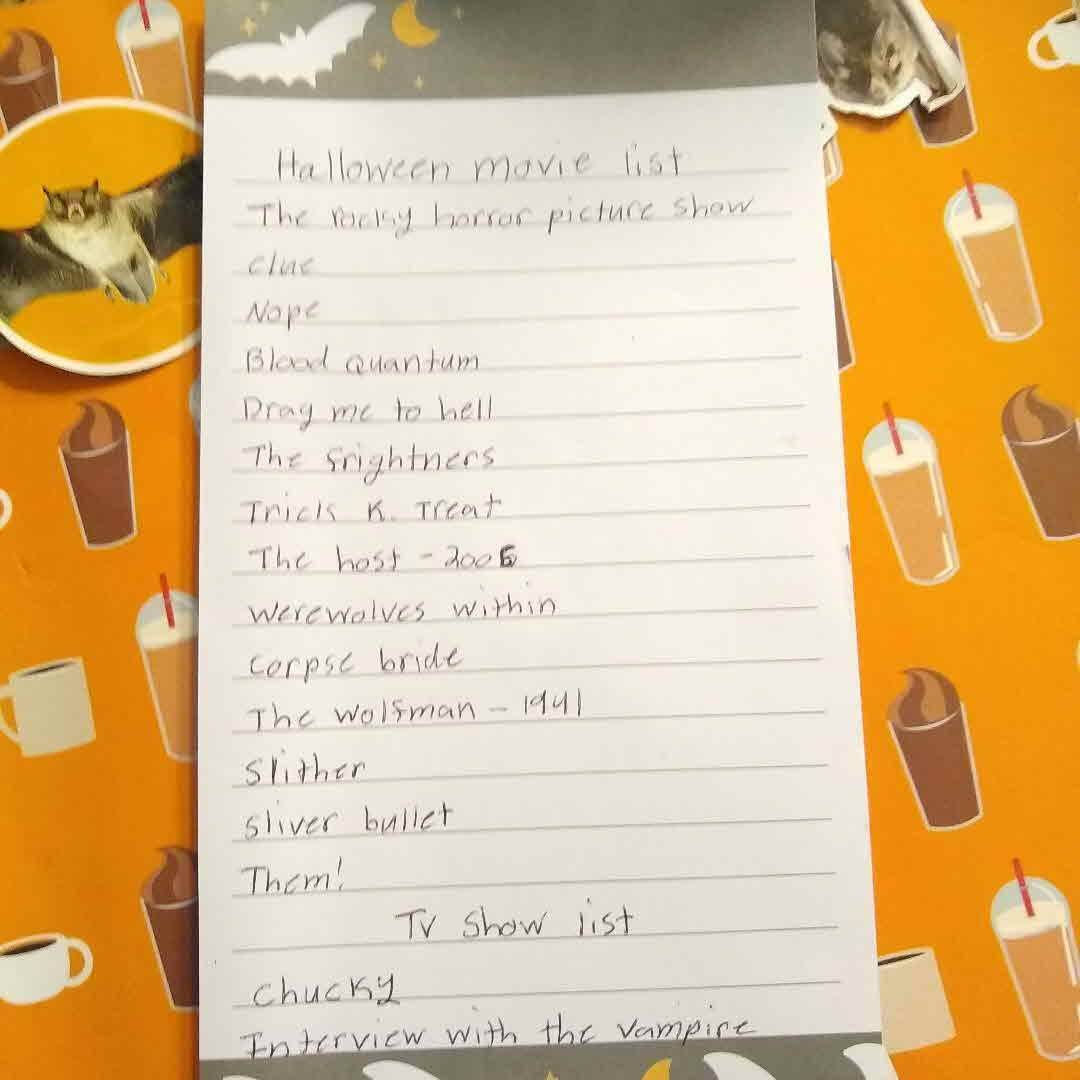 Halloween movie list
The rocky horror picture show
clue
Nope
Blood quantum
Drag me to hell
The frightners
Trick R. Treat
The host - 2006
Werewolves within
corpse bride
The wolfman - 1941
Slither
sliver bullet
Them!
TV show list
Chucky
Interview with the vampire